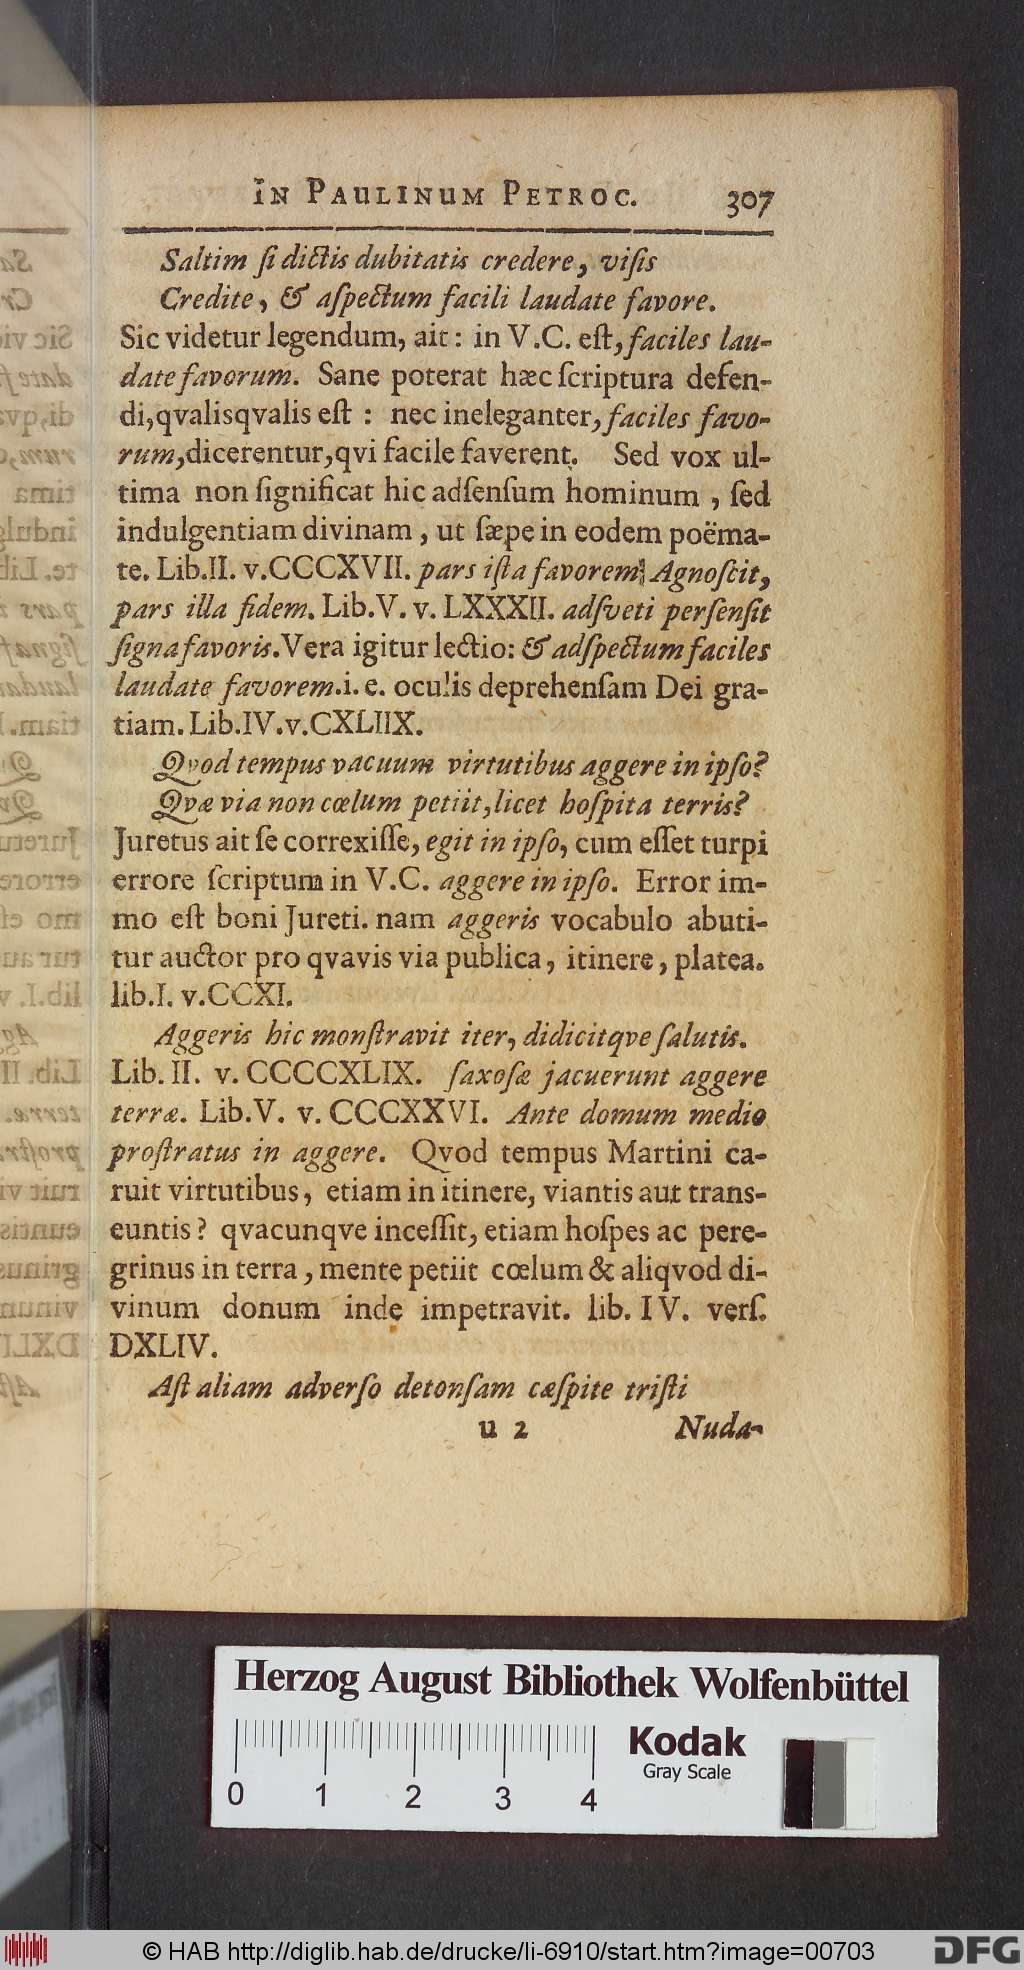 IN PAULINUM PETROC. 307
Saltim ſi dictis dubitatis credere, viſis
Credite, & aſpectum facili laudate favore.
Sic videtur legendum, ait: in V.C. eſt, faciles lau-
date favorum. Sane poterat hæc ſcriptura defen-
di, qvalisqvalis eſt : nec ineleganter, faciles favo-
rum, dicerentur, qvi facile faverent. Sed vox ul-
tima non ſignificat hic adſenſum hominum, ſed
indulgentiam divinam, ut ſæpe in eodem poëma-
te. Lib.II. v.CCCXVII. pars iſta favorem Agnoſcit,
pars illa fidem. Lib.V. v. LXXXII. adſveti perſenſit
ſigna favoris. Vera igitur lectio: & adſpectum faciles
laudate favorem. i. e. oculis deprehenſam Dei gra-
tiam. Lib.IV.v.CXLIIX.
Qvod tempus vacuum virtutibus aggere in ipſo?
Qvæ via non cœlum petiit, licet hoſpita terris?
Juretus ait ſe correxiſſe, egit in ipſo, cum eſſet turpi
errore ſcriptum in V.C. aggere in ipſo. Error im-
mo eſt boni Jureti. nam aggeris vocabulo abuti-
tur auctor pro qvavis via publica, itinere, platea.
lib.I. v.CCXI.
Aggeris hic monſtravit iter, didicitqve ſalutis.
Lib. II. v. CCCCXLIX. ſaxoſæ jacuerunt aggere
terræ. Lib.V. v. CCCXXVI. Ante domum medio
proſtratus in aggere. Qvod tempus Martini ca-
ruit virtutibus, etiam in itinere, viantis aut trans-
euntis? qvacunqve inceſſit, etiam hoſpes ac pere-
grinus in terra, mente petiit cœlum & aliqvod di-
vinum donum inde impetravit. lib. IV. verſ.
DXLIV.
Aſt aliam adverſo detonſam cæſpite triſti
u 2 Nuda-
Herzog August Bibliothek Wolfenbüttel
Kodak
Gray Scale
0 1 2 3 4
© HAB http://diglib.hab.de/drucke/li-6910/start.htm?image=00703
DFG